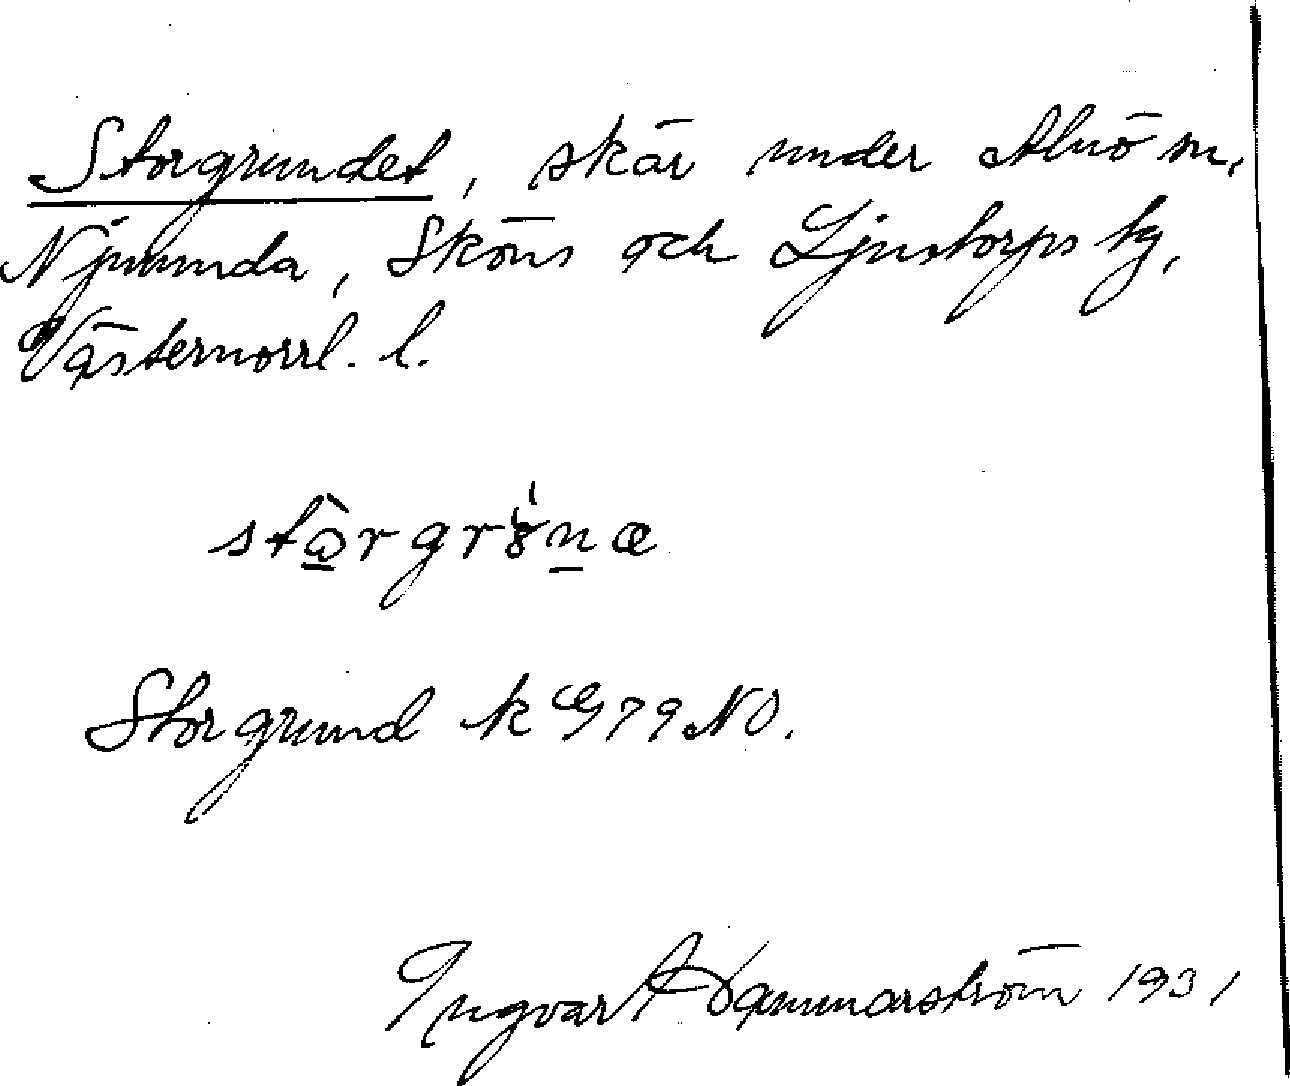 Storgrundet, skär under Alnö m,
Njurunda, Sköns och Ljustorps tg,
Västernorrl. l.
Storgrund k G79 NO.
Ingvar Hammarström 1931